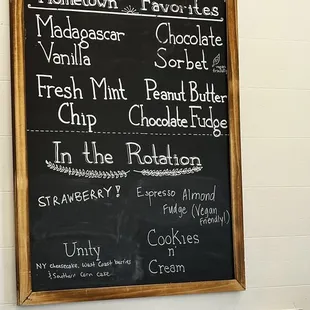 Hometown Favorites
Madagascar
Vanilla
Chocolate
Sorbet
vegan
friendly
Fresh Mint
Chip
Peanut Butter
Chocolate Fudge
In the Rotation
STRAWBERRY!
Espresso Almond
Fudge (Vegan
Friendly!)
Unity
NY cheesecake, West Coast berries
& Southern Corn Cake
Cookies
n'
Cream